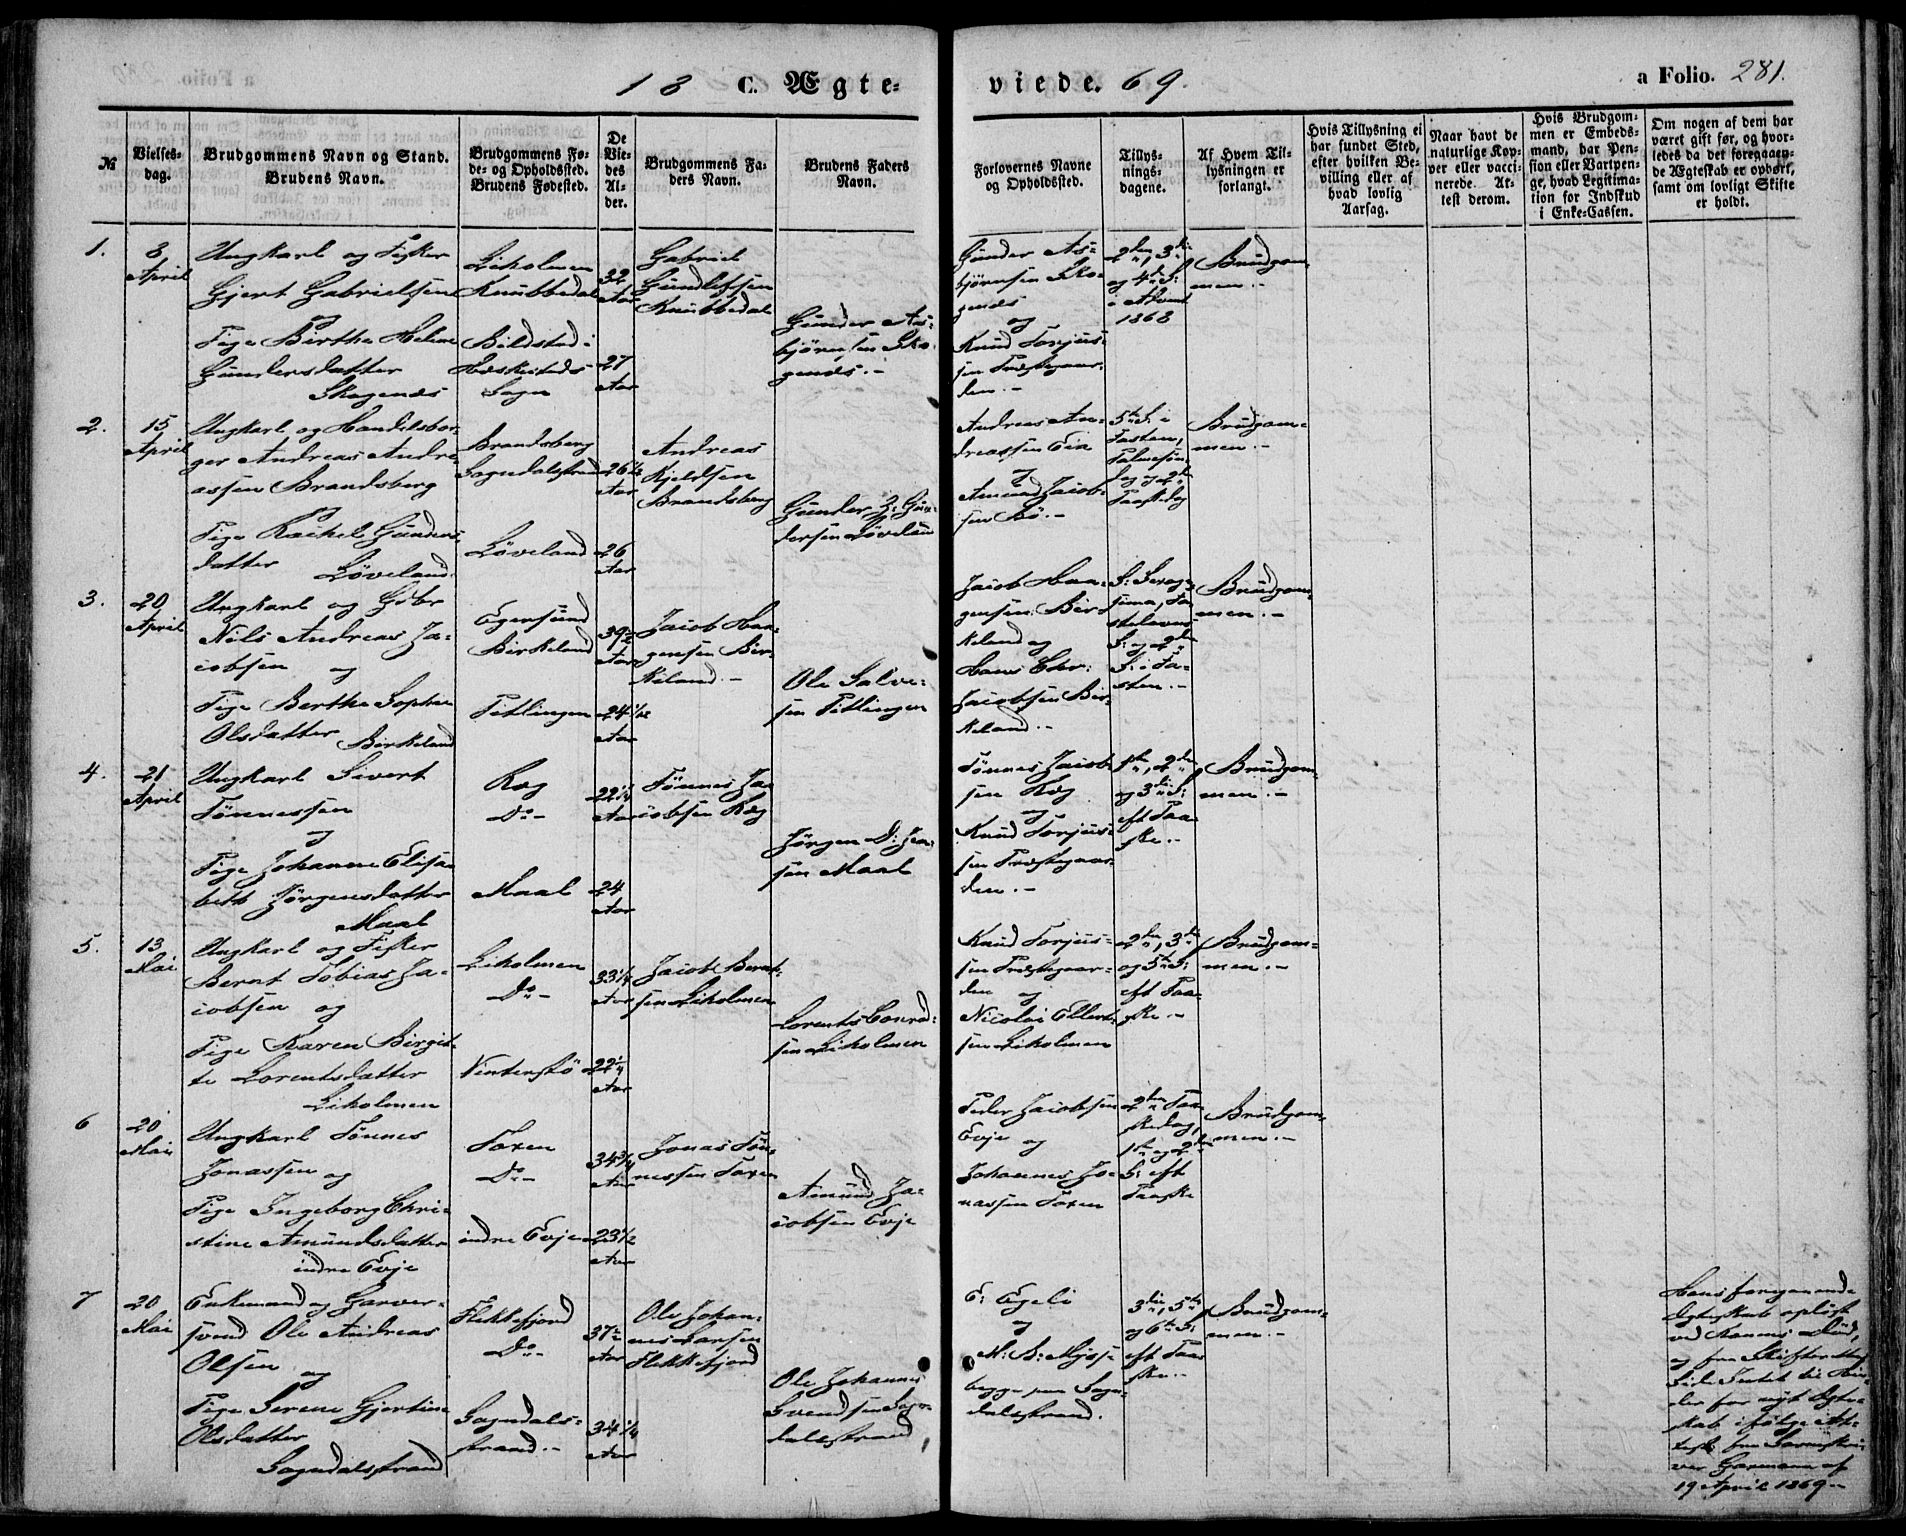 18 C. Ægte=
viede. 69.
a Folio. 281.
№
Vielses=
dag.
Brudgommens Navn og Stand.
Brudens Navn.
Brudgommens Fø=
de= og Opholdssted.
Brudens Fødested.
De
Vie=
des
Al=
der.
Brudgommens Fa=
ders Navn.
Brudens Faders
Navn.
Forlovernes Navne
og Opholdssted.
Tillys=
nings=
dagene.
Af Hvem Til=
lysningen er
forlangt.
Hvis Tillysning ei
har fundet Sted,
efter hvilken Be=
villing eller af
hvad lovlig
Aarsag.
Naar havt de
naturlige Kop=
per eller vacci=
nerede. At=
test derom.
Hvis Brudgom=
men er Embeds=
mand, har Pen=
sion eller Vartpen=
ge, hvad Legitima=
tion for Indskud
i Enke=Cassen.
Om nogen af dem har
været gift før, og hvor=
ledes da det foregaaen=
de Ægteskab er ophørt,
samt om lovligt Skifte
er holdt.
1.
8
April
Ungkarl og Fisker
Gjert Gabrielsen
og
Pige Berthe Helene
Gundersdatter
Skogenæs
Liholmen
Knubbedal
Bildstad i
Heskestads
Sogn
32
Aar
27
Aar
Gabriel
Gundlefsen
Knubbedal
Gunder As=
bjørnsen Sko=
genæs.-
Gunder As=
bjørnsen Sko=
genæs
og
Knud Torjus=
sen Præstegaar=
den.-
2den, 3die
og 4de S:
i Advent
1868
Brudgom=
men.-
2.
15
April
Ungkarl og Handelsbor=
ger Andreas Andre=
assen Brandsberg
og
Pige Rachel Gunders=
datter
Løveland.
Brandsberg
Sogndalsstrand
Løveland
26 1/2
Aar
26
Aar
Andreas
Kjeldsen
Brandsberg
Gunder Gun=
dersen Løveland
Andreas An=
dreassen Eia
og
Amund Jacob=
sen Bø.-
5te S: i
Fasten,
Palmesøn=
dag og 2den
Paaskedag
Brudgom=
men.-
3.
20
April
Ungkarl og Gdbr
Nils Andreas Ja=
cobsen og
Pige Berthe Sophie
Olsdatter Birkeland
Egersund
Birkeland
Pitlingen
39 1/2
Aar
24 1/12
Aar
Jacob Haa=
gensen Bir=
keland.-
Ole Salve=
sen Pitlingen
Jacob Haa=
gensen Bir=
keland og
Hans Chr:
Jacobsen Bir=
keland.-
S: Sexage=
sima, Fa=
stelavns
S: og 2den
S: i Fa=
sten.-
Brudgom=
men.-
4.
21
April
Ungkarl Sivert
Tønnessen
og
Pige Johanne Elisa=
beth Jørgensdatter
Maal
Ræg
Do-
Maal
22 1/4
Aar
24
Aar
Tønnes Ja=
cobsen Ræg
Jørgen D: Jen=
sen Maal
Tønnes Jacob=
sen Ræg
og
Knud Torjus=
sen Præstegaar=
den.-
1ste, 2den
og 3die S:
eft Paa=
ske.-
Brudgom=
men.-
5.
13
Mai
Ungkarl og Fisker
Bernt Tobias Ja=
cobsen og
Pige Karen Birgit=
te Lorentsdatter
Liholmen
Liholmen
Do-
Vinterstø
33 1/4
Aar
22 1/4
Aar
Jacob Bernt=
sen Liholmen
Lorents Conrad=
sen Liholmen
Knud Torjus=
sen Præstegaar=
den og
Nicolai Ellert=
sen Liholmen
2den, 3die
og 5te S:
eft Paa=
ske.-
Brudgom=
men.-
6
20
Mai
Ungkarl Tønnes
Jonassen og
Pige Ingeborg Chri=
stine Amundsdatter
indre Evje
Foxen
Do-
indre Evje
34 3/4
Aar
23 1/2
Aar
Jonas Tøn=
nessen Foxen
Amund Ja=
cobsen Evje
Peder Jacobsen
Evje og
Johannes Jo=
nassen Foxen
2den Paa=
skedag,
1ste og 2den
S: eft
Paaske
Brudgom=
men.-
7
20
Mai
Enkemand og Garver=
svend Ole Andreas
Olsen og
Pige Serene Gjertine
Olsdatter
Sogndalsstrand
Flekkefjord
Do-
Sogndals=
strand.-
37 1/2
Aar
34 1/4
Aar
Ole Johan=
nes Larsen
Flekkefjord
Ole Johannes
Svendsen Sogn=
dalsstrand
E: Egeli
og
M: B: Myssi
begge paa Sogn=
dalsstrand.
3die, 5te
og 6te S:
eft Paa=
ske.-
Brudgom=
men.-
Hans foregaaende
Ægteskab opløst
ved Konens Død,
og fra Skifterettens
Side Intet til Hin=
der for nyt Ægte=
skab ifølge At=
test fra Sorenskri=
ver Garmann af
19 April 1869.-